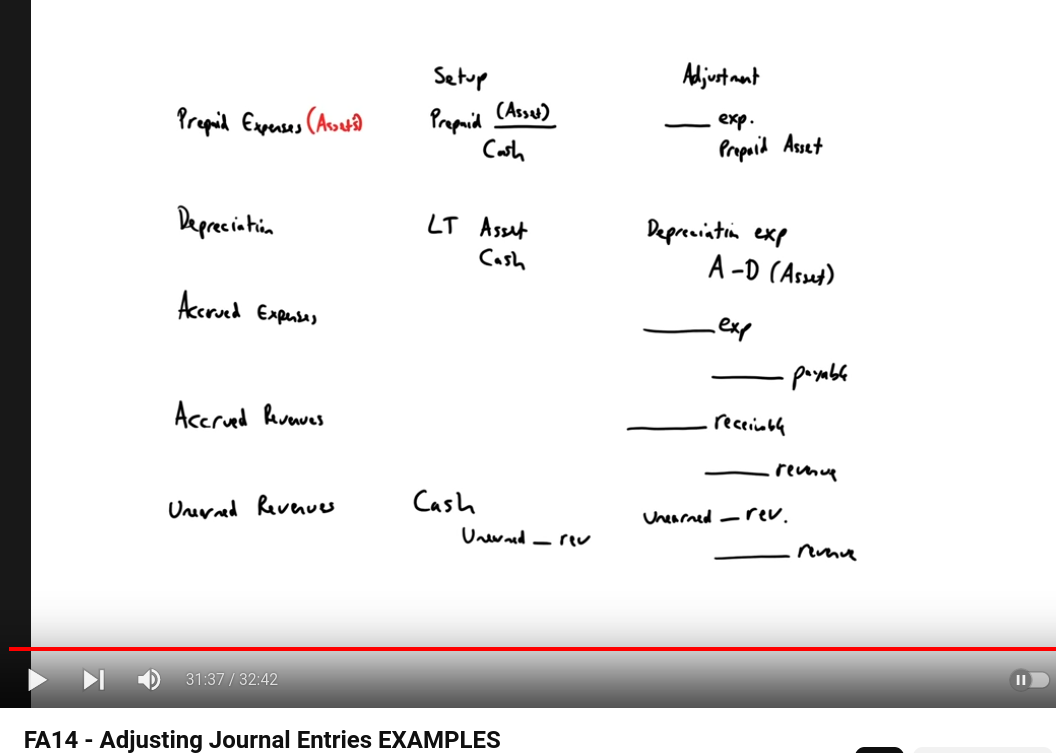 Setup Adjustment
Prepaid Expenses (Assets) Prepaid (Asset) ___ exp.
Cash Prepaid Asset
Depreciation LT Asset Depreciation exp
Cash A-D (Asset)
Accrued Expenses ___ exp
___ payable
Accrued Revenues ___ receivable
___ revenue
Unearned Revenues Cash Unearned _ rev.
Unearned _ rev ___ revenue
31:37 / 32:42
FA14 - Adjusting Journal Entries EXAMPLES